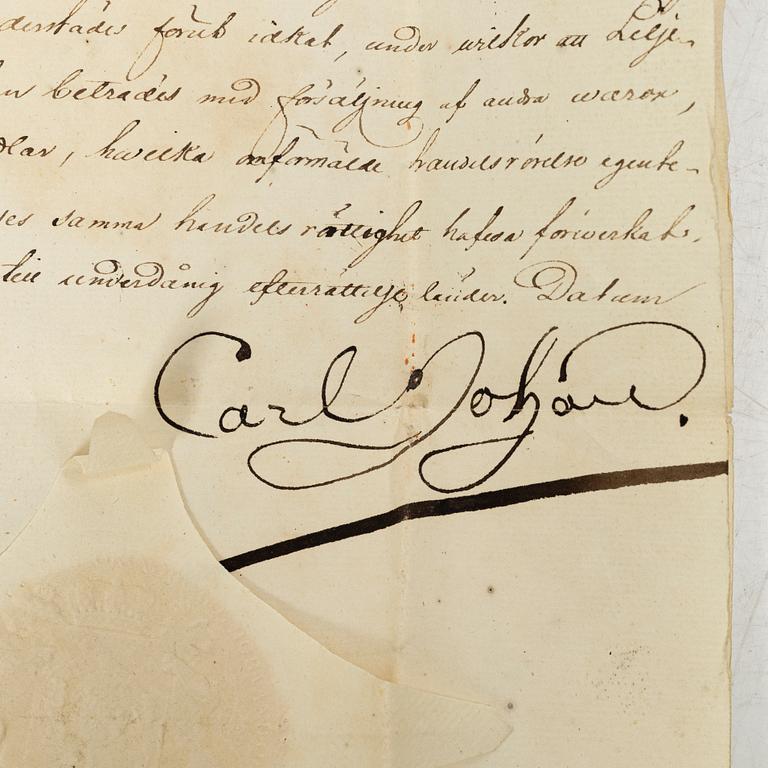 derstådes förut idkat, under wilkor att Lilje-
betrades med försäljning af andra waror,
hwilka omförmälde handelsrörelse egente-
samma handels rättighet hafwa förwerkat.
till underdånig efterrättelse länder. Datum
Carl Johan.